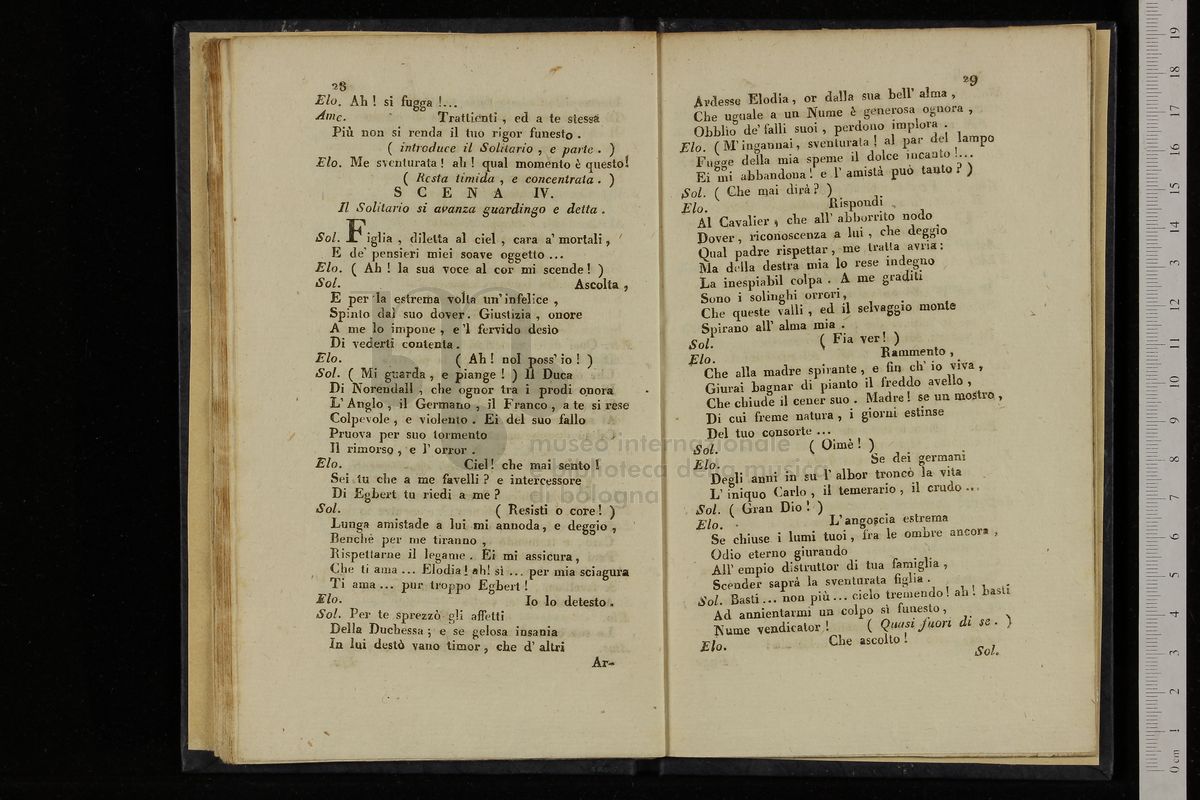 28
Elo. Ah ! si fugga !...
Ame. Trattienti , ed a te stessa
Più non si renda il tuo rigor funesto .
( introduce il Solitario , e parte . )
Elo. Me sventurata ! ah ! qual momento è questo!
( Resta timida , e concentrata . )
S C E N A IV.
Il Solitario si avanza guardingo e detta .
Sol. Figlia , diletta al ciel , cara a' mortali ,
E de' pensieri miei soave oggetto ...
Elo. ( Ah ! la sua voce al cor mi scende ! )
Sol. Ascolta ,
E per la estrema volta un' infelice ,
Spinto dal suo dover. Giustizia , onore
A me lo impone , e 'l fervido desio
Di vederti contenta .
Elo. ( Ah ! nol poss' io ! )
Sol. ( Mi guarda , e piange ! ) Il Duca
Di Norendall , che ognor tra i prodi onora
L' Anglo , il Germano , il Franco , a te si rese
Colpevole , e violento . Ei del suo fallo
Pruova per suo tormento
Il rimorso , e l' orror .
Elo. Ciel! che mai sento !
Sei tu che a me favelli ? e intercessore
Di Egbert tu riedi a me ?
Sol. ( Resisti o core! )
Lunga amistade a lui mi annoda, e deggio ,
Benchè per me tiranno ,
Rispettarne il legame . Ei mi assicura ,
Che ti ama ... Elodia ! ah! sì ... per mia sciagura
Ti ama ... pur troppo Egbert !
Elo. Io lo detesto .
Sol. Per te sprezzò gli affetti
Della Duchessa ; e se gelosa insania
In lui destò vano timor , che d' altri
Ar-
29
Ardesse Elodia , or dalla sua bell' alma ,
Che uguale a un Nume è generosa ognora ,
Obblio de' falli suoi , perdono implora .
Elo. ( M' ingannai , sventurata ! al par del lampo
Fugge della mia speme il dolce incanto !...
Ei mi abbandona ! e l' amistà può tanto ? )
Sol. ( Che mai dirà ? )
Elo. Rispondi
Al Cavalier , che all' abborrito nodo
Dover , riconoscenza a lui , che deggio
Qual padre rispettar , me tratta avria :
Ma della destra mia lo rese indegno
La inespiabil colpa . A me graditi
Sono i solinghi orrori ,
Che queste valli , ed il selvaggio monte
Spirano all' alma mia .
Sol. ( Fia ver ! )
Elo. Rammento ,
Che alla madre spirante , e fin ch' io viva ,
Giurai bagnar di pianto il freddo avello ,
Che chiude il cener suo . Madre ! se un mostro ,
Di cui freme natura , i giorni estinse
Del tuo consorte ...
Sol. ( Oimè ! )
Elo. Se dei germani
Degli anni in su l' albor troncò la vita
L' iniquo Carlo , il temerario , il crudo ...
Sol. ( Gran Dio ! )
Elo. L' angoscia estrema
Se chiuse i lumi tuoi , fra le ombre ancora ,
Odio eterno giurando
All' empio distruttor di tua famiglia ,
Scender saprà la sventurata figlia .
Sol. Basti ... non più ... cielo tremendo ! ah ! basti
Ad annientarmi un colpo sì funesto ,
Nume vendicator ! ( Quasi fuori di se . )
Elo. Che ascolto !
Sol.
museo internazionale
e biblioteca della musica
di bologna